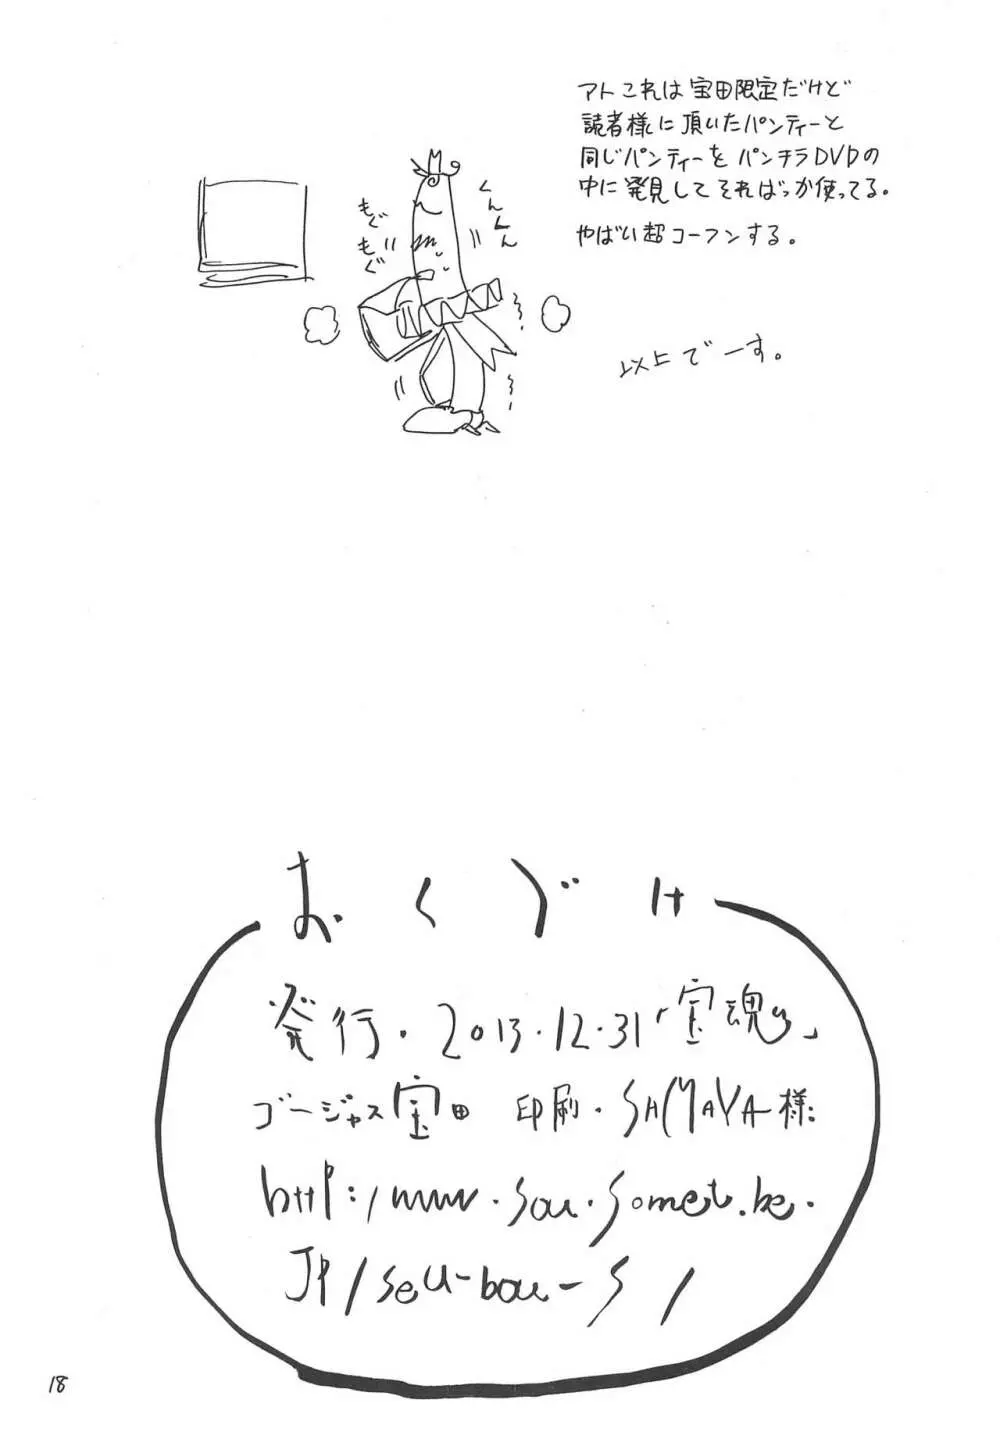 アトこれは宝田限定だけど
読者様に頂いたパンティーと
同じパンティーを パンチラDVDの
中に発見してそればっか使ってる。
やばい超コーフンする。
くんくん
もぐもぐ
以上でーす。
おくづけ
発行・2013・12・31「宝魂」
ゴージャス宝田 印刷・SAMAYA様
http:/www.sou.somet.be.
JP/seu-bou-s/
18